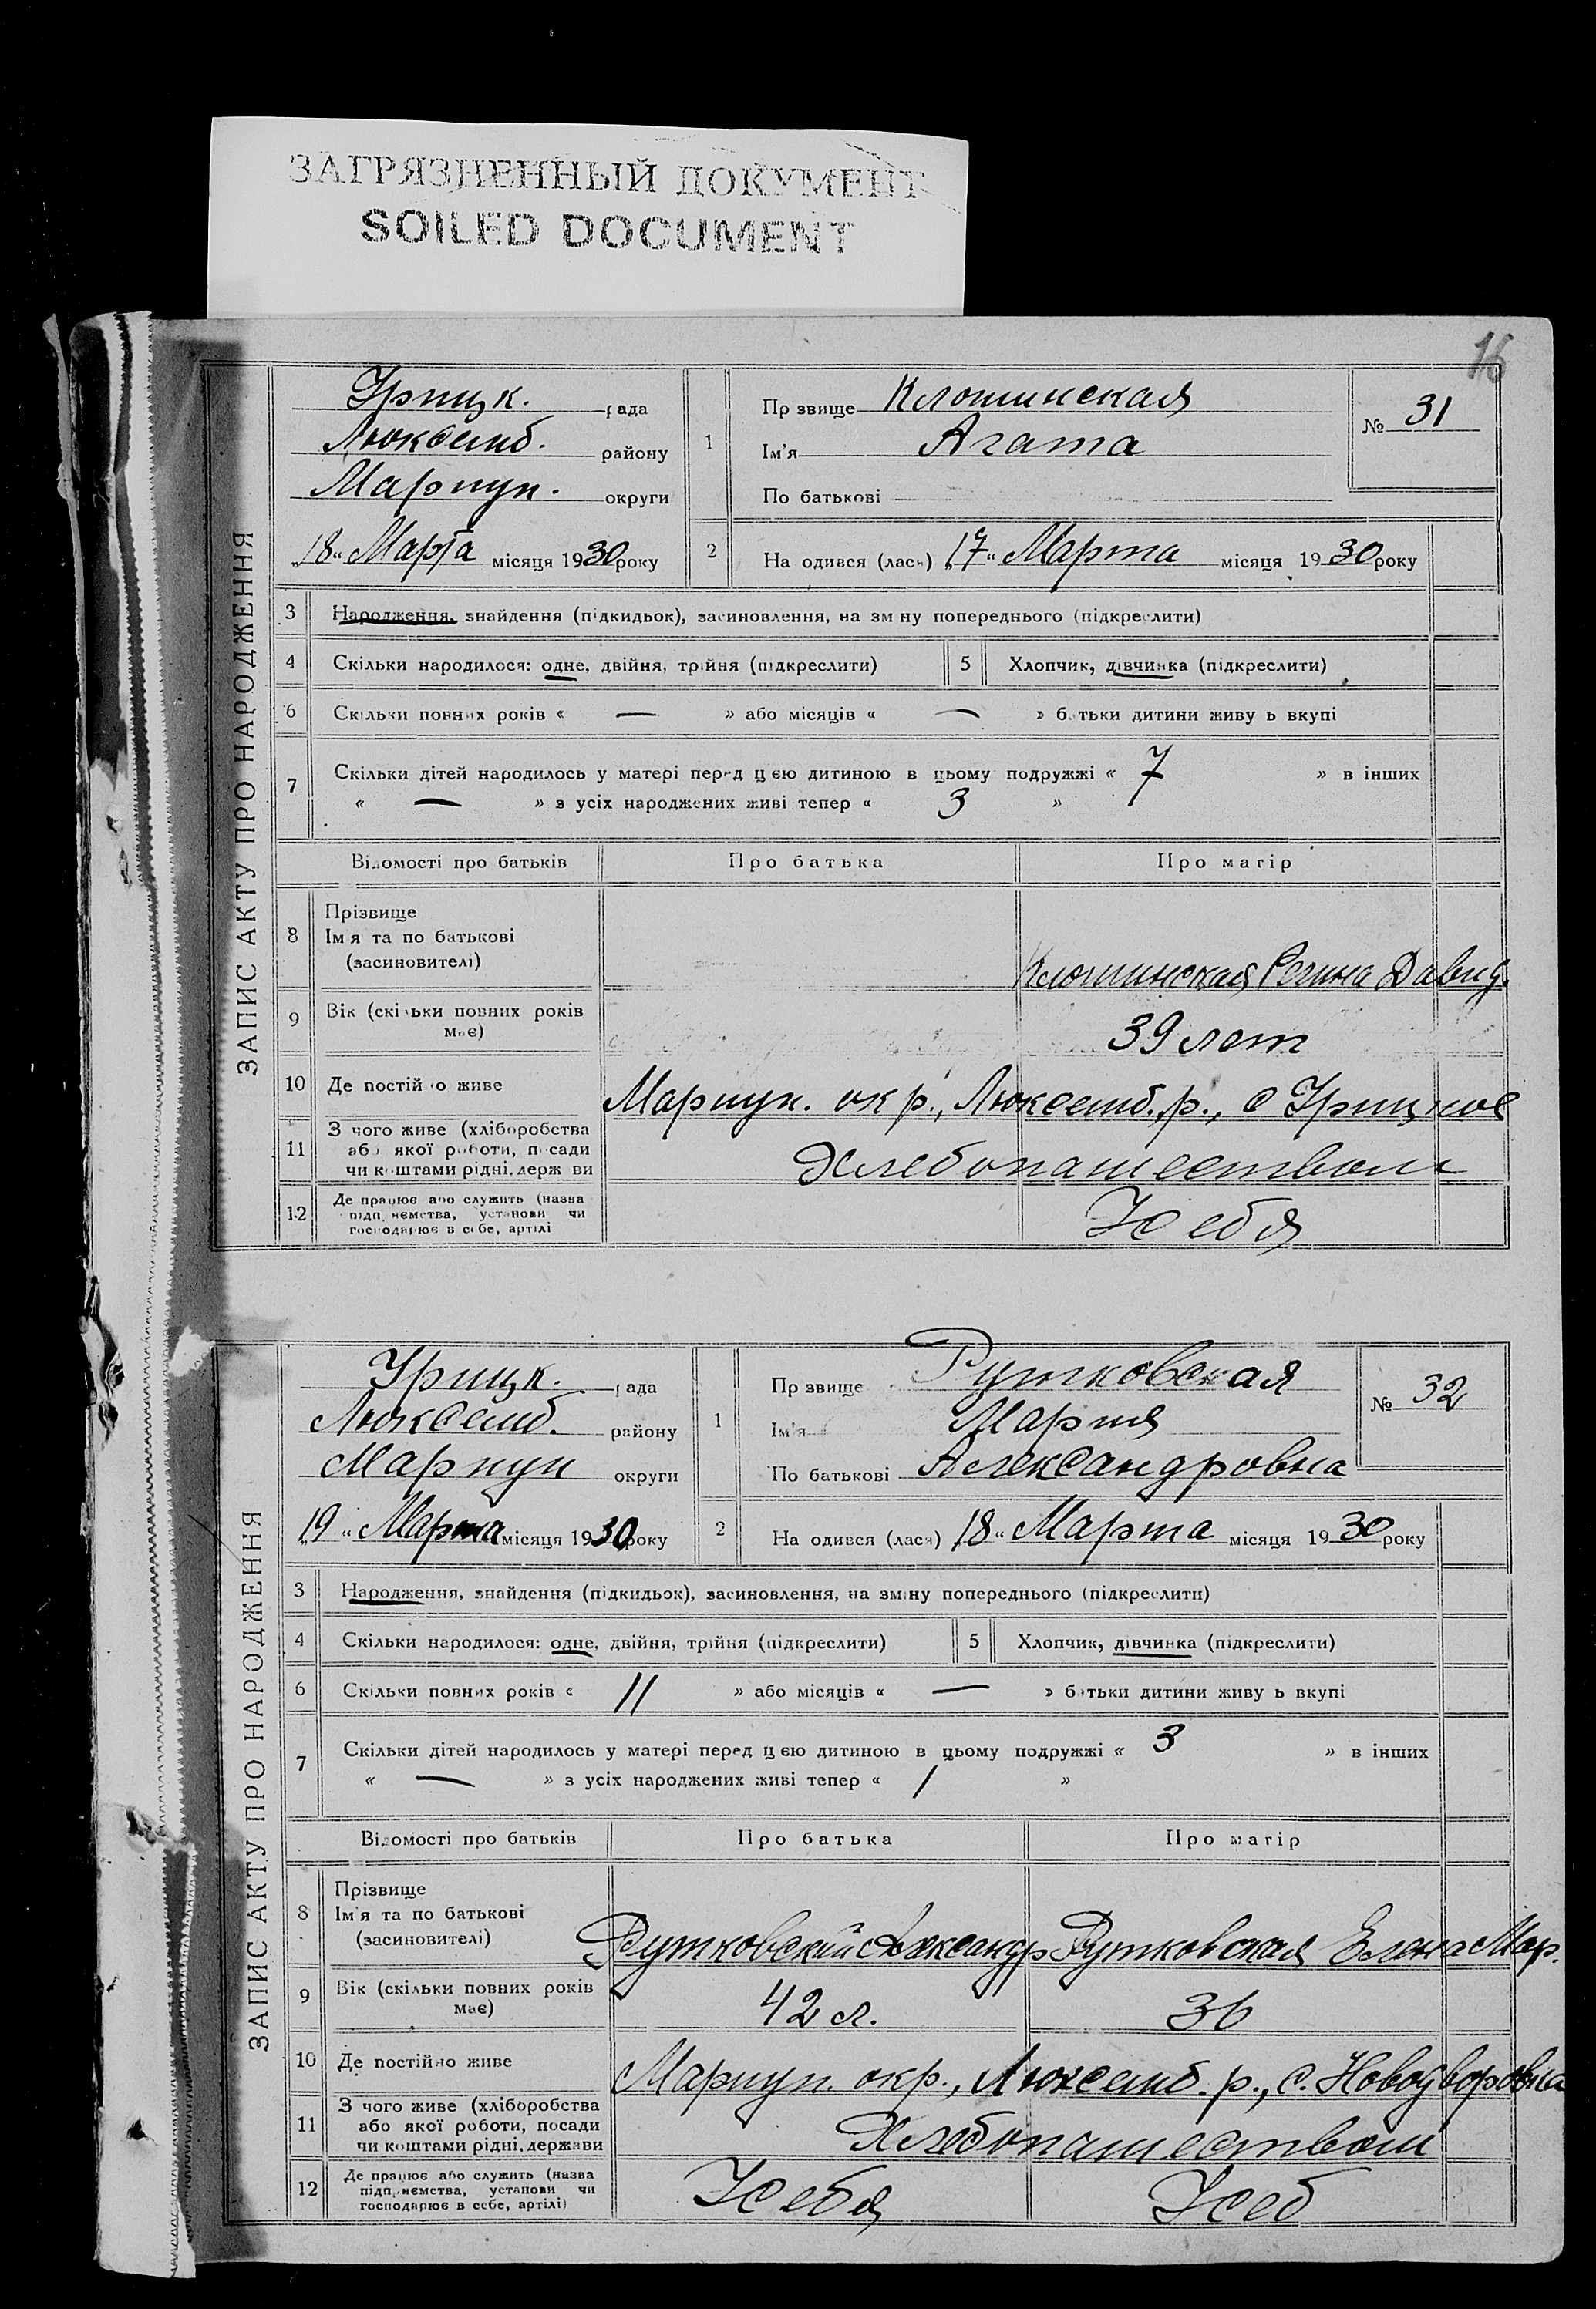 ЗАГРЯЗНЕННЫЙ ДОКУМЕНТ
SOILED DOCUMENT
16
ЗАПИС АКТУ ПРО НАРОДЖЕННЯ
Урицк. рада
Люксемб. району
Мариуп. округи
„18“ Марта місяця 1930 року
1
Прізвище Клошинская
Ім'я Агата
По батькові
№ 31
2
Народився (лась) „17“ Марта місяця 1930 року
3 Народження, знайдення (підкидьок), засиновлення, на зміну попереднього (підкреслити)
4 Скільки народилося: одне, двійня, трійня (підкреслити)
5 Хлопчик, дівчинка (підкреслити)
6 Скільки повних років « — » або місяців « — » батьки дитини живуть вкупі
7 Скільки дітей народилось у матері перед цією дитиною в цьому подружжі « 7 » в інших
« — » з усіх народжених живі тепер « 3 »
Відомості про батьків Про батька Про матір
8 Прізвище
Ім'я та по батькові
(засиновителі)
Клошинская Регина Давид.
9 Вік (скільки повних років
має)
39 лет
10 Де постійно живе Мариуп. окр., Люксемб. р., с Урицкое
11 З чого живе (хліборобства
або якої роботи, посади
чи коштами рідні, держави
Хлебопашеством
12 Де працює або служить (назва
підприємства, установи чи
господарює в себе, артілі
У себя
ЗАПИС АКТУ ПРО НАРОДЖЕННЯ
Урицк. рада
Люксемб. району
Мариуп округи
„19“ Марта місяця 1930 року
1
Прізвище Рутковская
Ім'я Мария
По батькові Александровна
№ 32
2
Народився (лася) „18“ Марта місяця 1930 року
3 Народження, знайдення (підкидьок), засиновлення, на зміну попереднього (підкреслити)
4 Скільки народилося: одне, двійня, трійня (підкреслити)
5 Хлопчик, дівчинка (підкреслити)
6 Скільки повних років « 11 » або місяців « — » батьки дитини живуть вкупі
7 Скільки дітей народилось у матері перед цією дитиною в цьому подружжі « 3 » в інших
« — » з усіх народжених живі тепер « 1 »
Відомості про батьків Про батька Про матір
8 Прізвище
Ім'я та по батькові
(засиновителі)
Рутковский Александр Рутковская Елена Мар.
9 Вік (скільки повних років
має)
42 л. 36
10 Де постійно живе Мариуп. окр., Люксемб. р., с. Новодворовка
11 З чого живе (хліборобства
або якої роботи, посади
чи коштами рідні, держави
Хлебопашеством
12 Де працює або служить (назва
підприємства, установи чи
господарює в себе, артілі)
У себя У себ